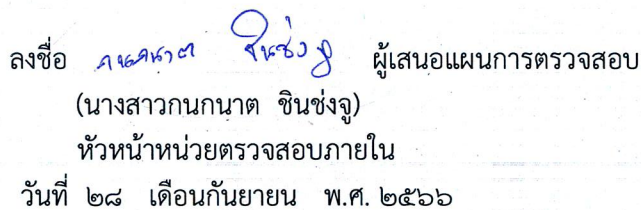 ลงชื่อ กนกนาต ชินช่งจู ผู้เสนอแผนการตรวจสอบ
(นางสาวกนกนาต ชินช่งจู)
หัวหน้าหน่วยตรวจสอบภายใน
วันที่ ๒๘ เดือนกันยายน พ.ศ. ๒๕๖๖